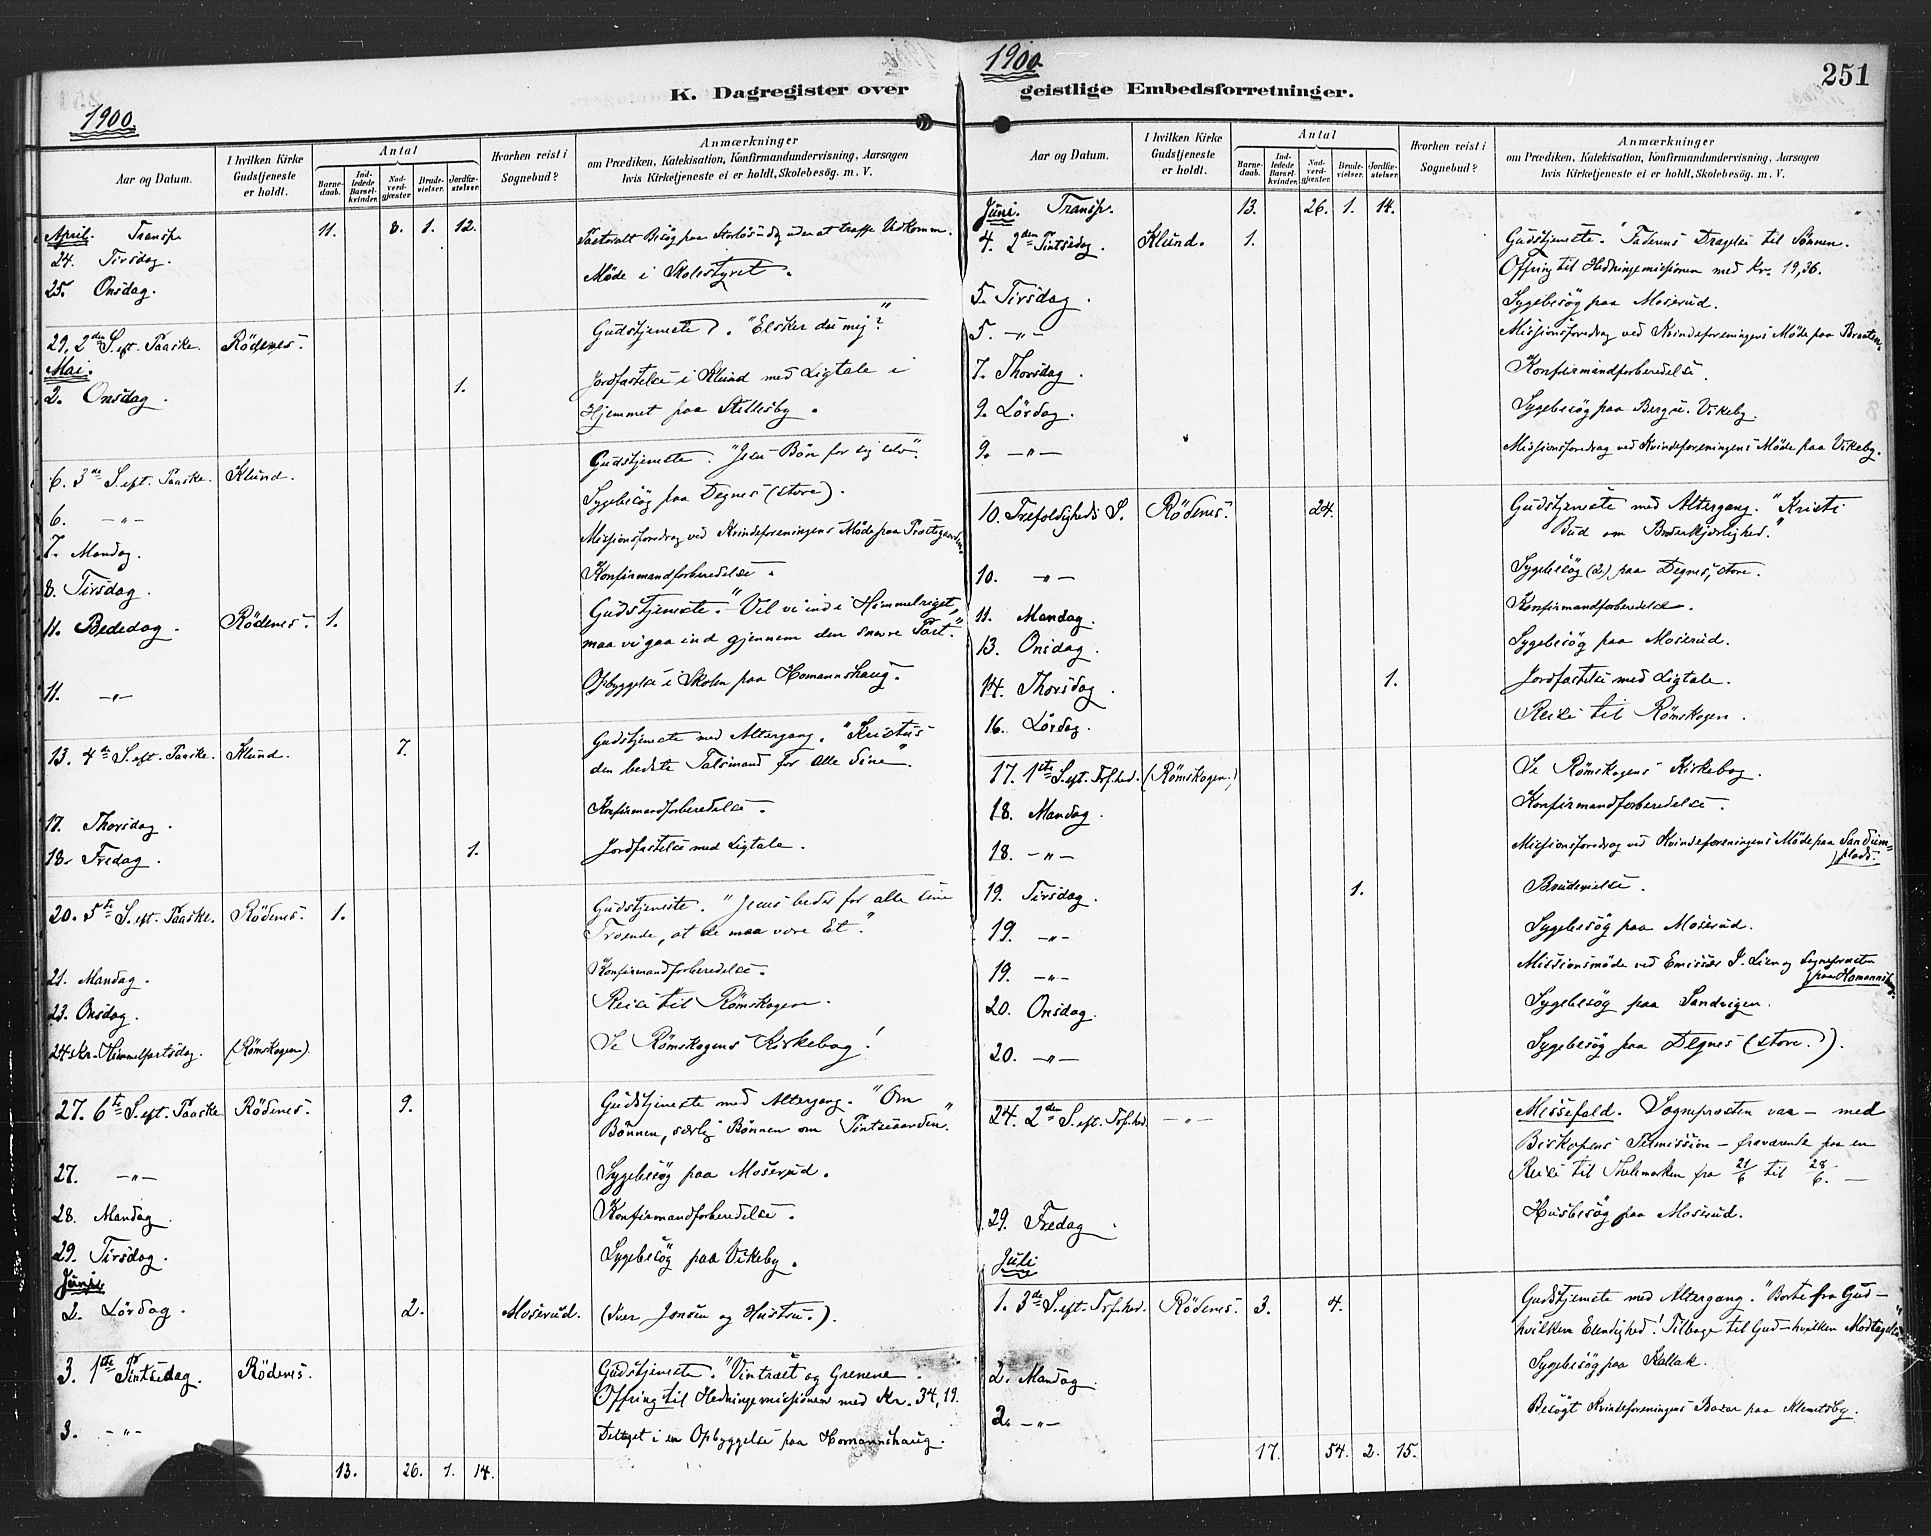 1900.
K. Dagregister over
Aar og Datum.
I hvilken Kirke Gudstjeneste er holdt.
Antal
Barne-daab.
Ind-ledede Barsel-kvinder.
Nad-verd-gjæster.
Brude-vielser.
Jordfæ-stelser.
Hvorhen reist i Sognebud?
Anmærkninger
om Prædiken, Katekisation, Konfirmandundervisning, Aarsagen
hvis Kirketjeneste ei er holdt, Skolebesøg. m. V.
April. Transp. 11. 8. 1. 12.
24. Tirsdag. Pastoralt Besøg paa uden at træffe Vedkomm.
25. Onsdag. Møde i Skolestyret.
29. 2den S. eft. Paaske. Rödenes. Gudstjeneste. "Elsker du mig?"
Mai.
2. Onsdag. 1. Jordfæstelse i Klund med Ligtale i
Hjemmet paa
6. 3die S. eft. Paaske. Klund. Gudstjeneste. "Jesu Bøn for sig selv"
6. -„- Sygebesög paa Degnes (store).
7. Mandag. Missionsforedrag ved Kvindeforeningens Møde paa Præstegaarden.
8. Tirsdag. Konfirmandforberedelse.
11. Bededag. Rödenes. 1. Gudstjeneste. "Vil vi ind i Himmelriget,
maa vi gaa ind gjennem den snevre Port."
11. -„- Opbyggelse i Skolen paa Homannshaug.
13. 4de S. eft. Paaske. Klund. 7. Gudstjeneste med Altergang. "Kristus
den bedste Talsmand for alle sine"
17. Thorsdag. Konfirmandforberedelse.
18. Fredag. 1. Jordfæstelse med Ligtale.
20. 5te S. eft. Paaske. Rödenes. 1. Gudstjeneste. "Jesus beder for alle sine
Troende, at de maa være Et."
21. Mandag. Konfirmandforberedelse.
23. Onsdag. Reise til Römskogen.
24. Kr. Himmelfartsdag. (Römskogen). Se Römskogens Kirkebog!
27. 6te S. eft. Paaske Rödenes. 9. Gudstjeneste med Altergang. "Om
Bønnen, særlig Bønnen om Pintseaanden."
27. -„- Sygebesög paa Moserud.
28. Mandag. Konfirmandforberedelse.
29. Tirsdag. Sygebesög paa Vikeby.
Juni
2. Lördag. 2. Moserud. (Iver Jensen og Hustru.).
3. 1ste Pintsedag. Rödenes. Gudstjeneste. "Vintræet og Grenene.
Offring til Hedningemissionen med Kr. 34,19.
3. -„- Deltaget i en Opbyggelse paa Homannshaug.
13. 26. 1. 14.
1900.
251
geistlige Embedsforretninger.
Aar og Datum.
I hvilken Kirke Gudstjeneste er holdt.
Antal
Barne-daab.
Ind-ledede Barsel-kvinder.
Nad-verd-gjæster.
Brude-vielser.
Jordfæ-stelser.
Hvorhen reist i Sognebud?
Anmærkninger
om Prædiken, Katekisation, Konfirmandundervisning, Aarsagen
hvis Kirketjeneste ei er holdt, Skolebesøg. m. V.
Juni. Transp. 13. 26. 1. 14.
4. 2den Pintsedag. Klund. 1. Gudstjeneste. "Faderens Dragelse til Sönnen."
Offring til Hedningemissionen med Kr. 19,36.
5. Tirsdag. Sygebesög paa Moserud.
5. -„- Missionsforedrag ved Kvindeforeningens Møde paa Braaten.
7. Thorsdag. Konfirmandforberedelse.
9. Lördag. Sygebesög paa Vikeby.
9. -„- Missionsforedrag ved Kvindeforeningens Møde paa Vikeby.
10. Trefoldigheds S. Rödenes. 24. Gudstjeneste med Altergang. "Kristi
Bud om Broderkjærlighed."
10. -„- Sygebesög (2) paa Degnes, store.
11. Mandag. Konfirmandforberedelse.
13. Onsdag. Sygebesög paa Moserud.
14. Thorsdag. 1. Jordfæstelse med Ligtale.
16. Lördag. Reise til Römskogen.
17. 1ste S. eft. Trf.hed. (Römskogen.) Se Römskogens Kirkebog.
18. Mandag. Konfirmandforberedelse.
18. -„- Missionsforedrag ved Kvindeforeningens Møde paa Sandumplads.
19. Tirsdag. 1. Brudevielse.
19. -„- Sygebesög paa Moserud.
19. -„- Missionsmøde ved Emissær I. Lien og Sognepræsten
paa Homannshaug.
20. Onsdag. Sygebesög paa Sandvigen.
20. -„- Sygebesög paa Degnes (store.).
24. 2den S. eft. Trf.hed. -„- Messefald. Sognepræsten var – med
Biskopens Permission – fraværende paa en
Reise til Thelemarken fra 21/6 til 28/6. –
29. Fredag. Husbesög paa Moserud.
Juli
1. 3die S. eft. Trf.hed. Rödenes. 3. 4. Gudstjeneste med Altergang. "Borte fra Gud –
hvilken Elendighed! Tilbage til Gud – hvilken Modtagelse"
2. Mandag. Sygebesög paa Kallak.
2. -„- Besögt Kvindeforeningens Bazar paa Klemetsby.
17. 54. 2. 15.